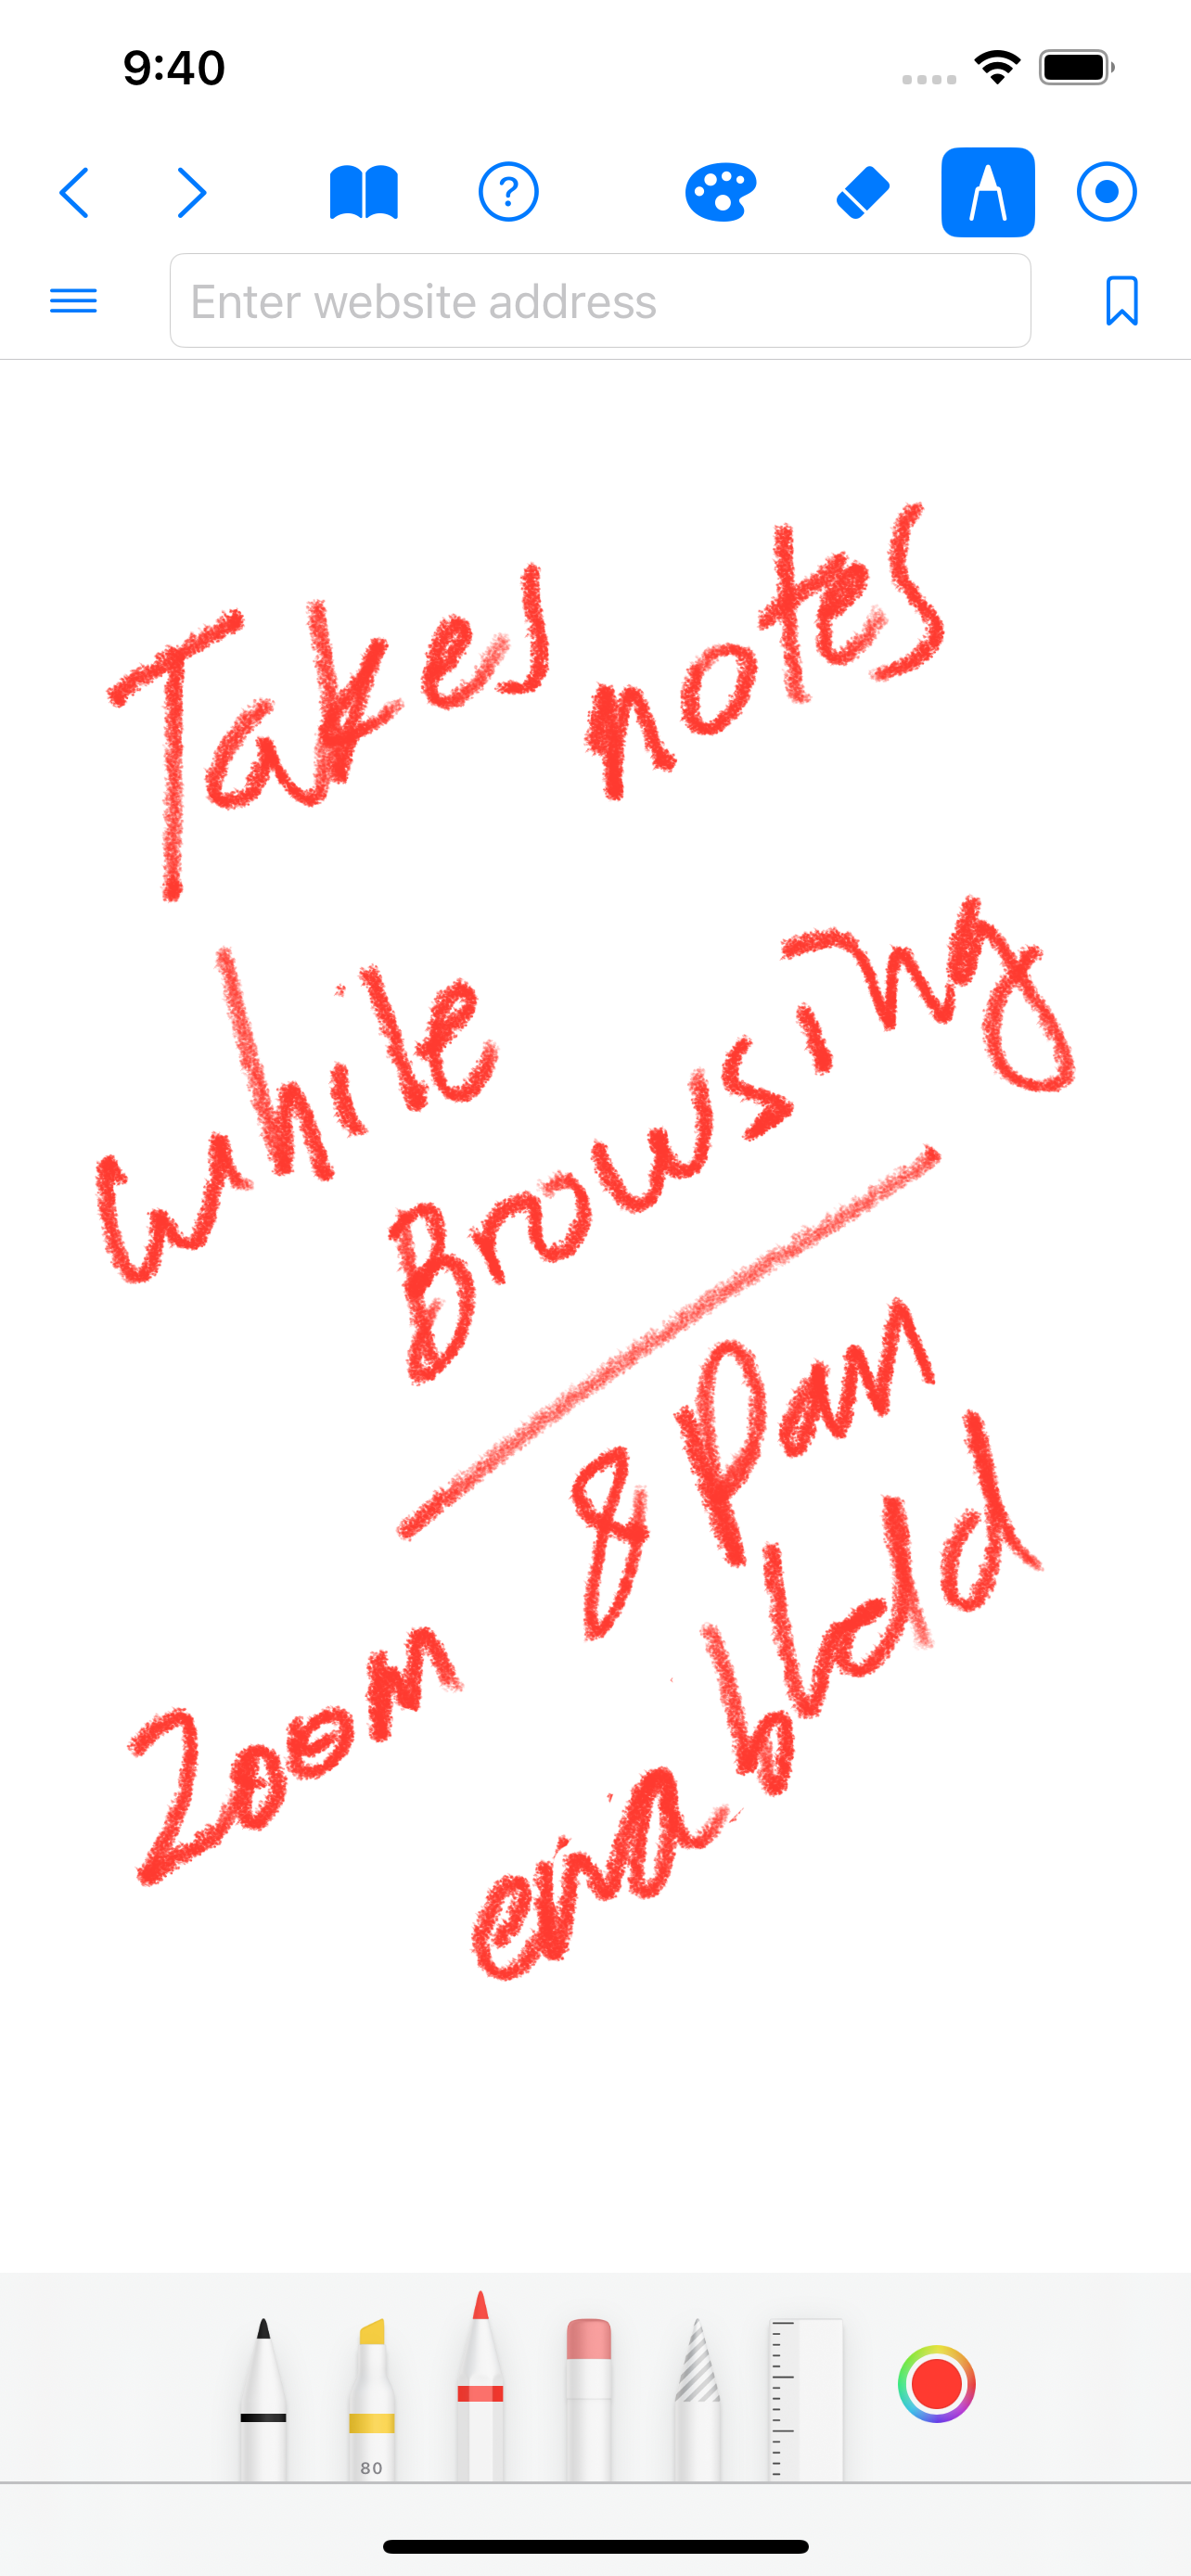 9:40
Enter website address
Takes notes
while
Browsing
Zoom & Pan
enabled
80